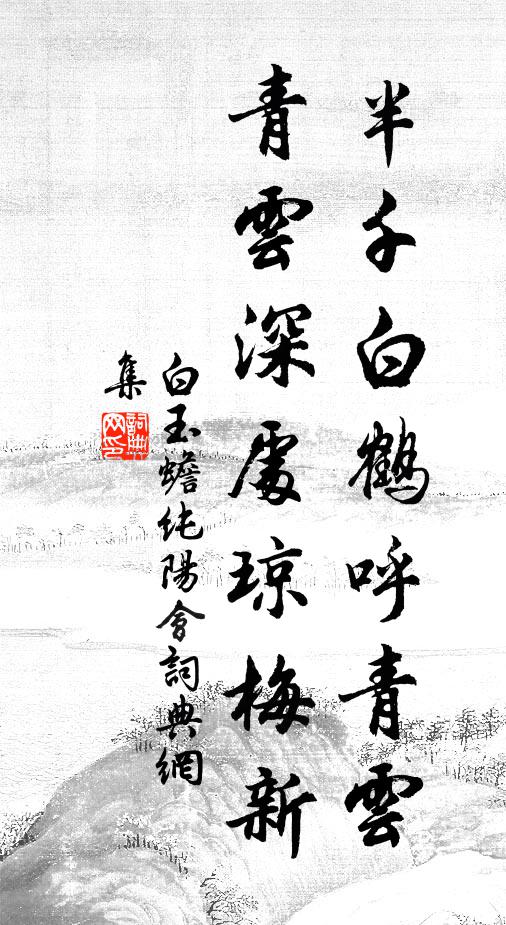 半千白鶴呼青雲
青雲深處琼梅新
白玉蟾純陽會詞典網
集
詞典
网印